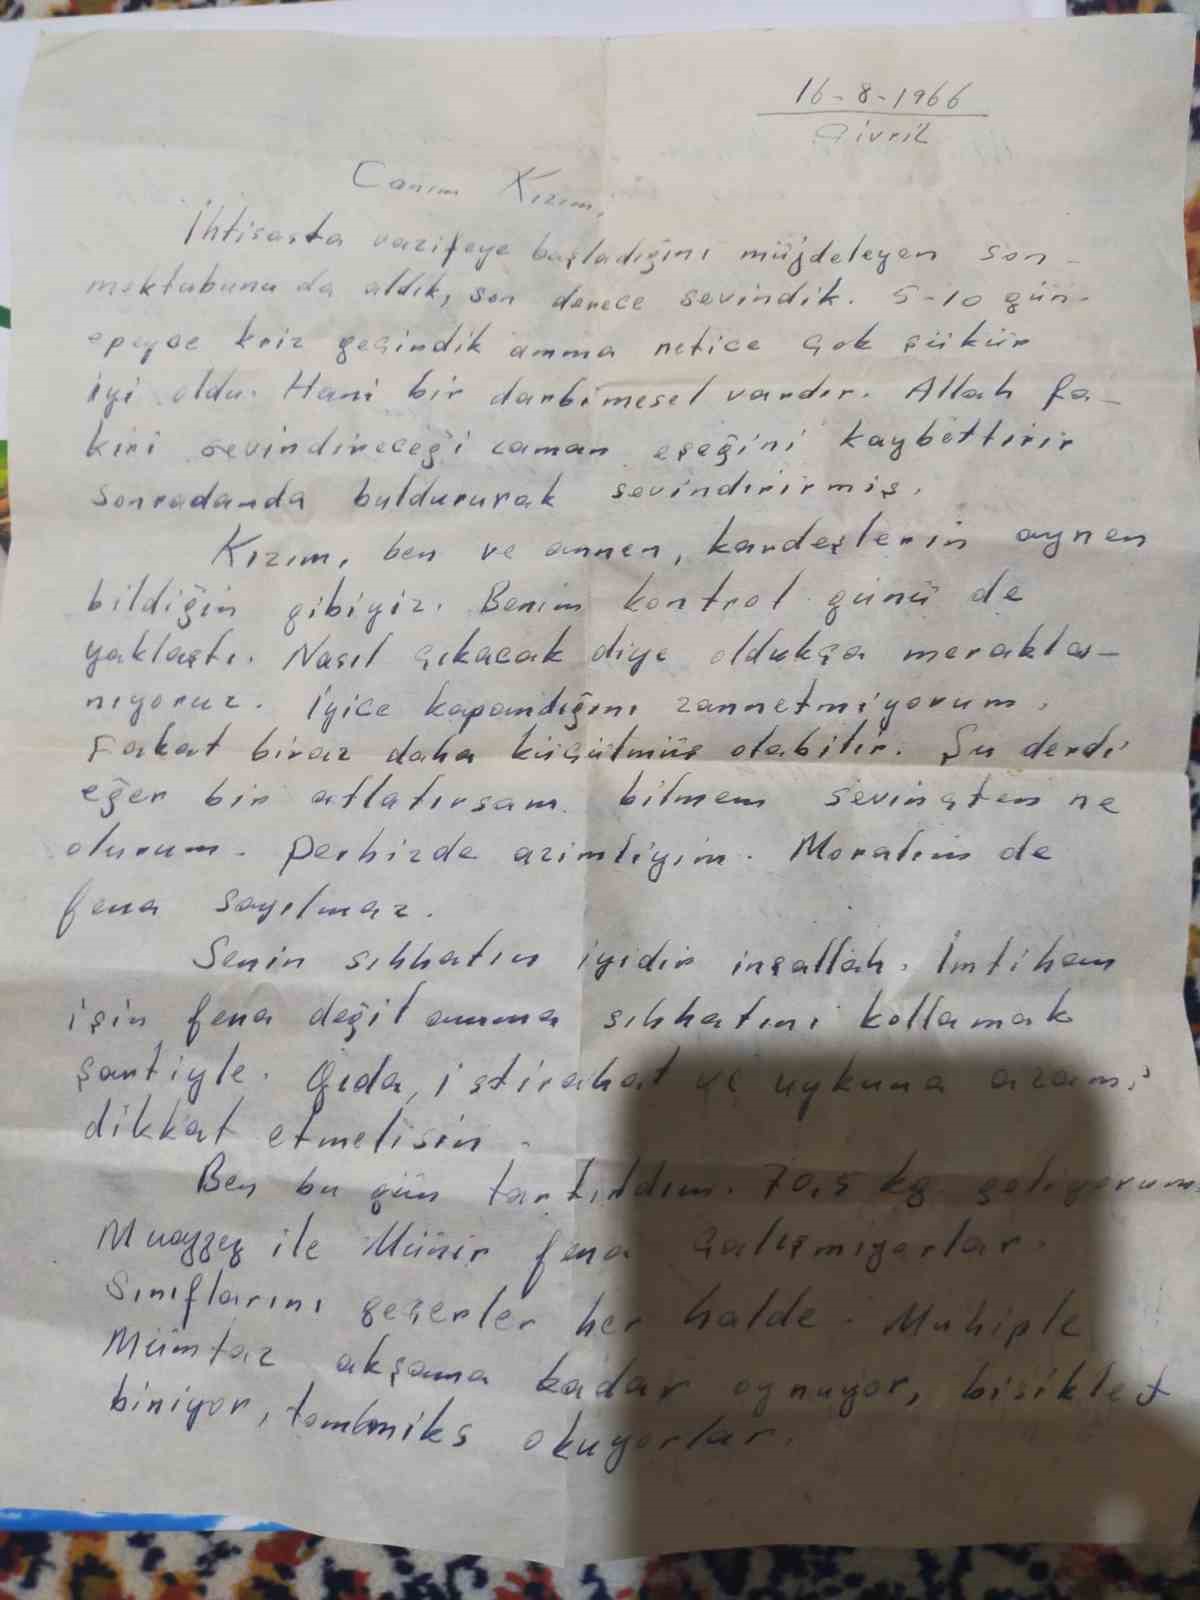 16-8-1966
Çivril
Canım Kızım,
İhtisasta vazifeye başladığını müjdeleyen son
mektabunu da aldık, son derece sevindik. 5-10 gün
epeyce kriz geçirdik amma netice çok şükür
iyi oldu. Hani bir darbimesel vardır. Allah fa-
kiri sevindireceği zaman eşeğini kaybettirir
sonradanda buldururak sevindirirmiş.
Kızım, ben ve annen, kardeşlerin aynen
bildiğin gibiyiz. Benim kontrol günü de
yaklaştı. Nasıl çıkacak diye oldukça merakla-
nıyoruz. İyice kapandığını zannetmiyorum.
Fakat biraz daha küçülmüş olabilir. Şu derdi
eğer bir atlatırsam bilmem sevinçten ne
olurum. Perhizde azimliyim. Moralim de
fena sayılmaz.
Senin sıhhatın iyidir inşallah. İmtihan
için fena değil amma sıhhatini kollamak
şartiyle. Gıda, istirahat ve uykuna azami
dikkat etmelisin.
Ben bu gün tartıldım. 70,5 kg geliyorum
Muazzez ile Münir fena çalışmıyorlar.
Sınıflarını geçerler her halde. Muhiple
Mümtaz akşama kadar oynuyor, bisiklet
biniyor, tommiks okuyorlar.